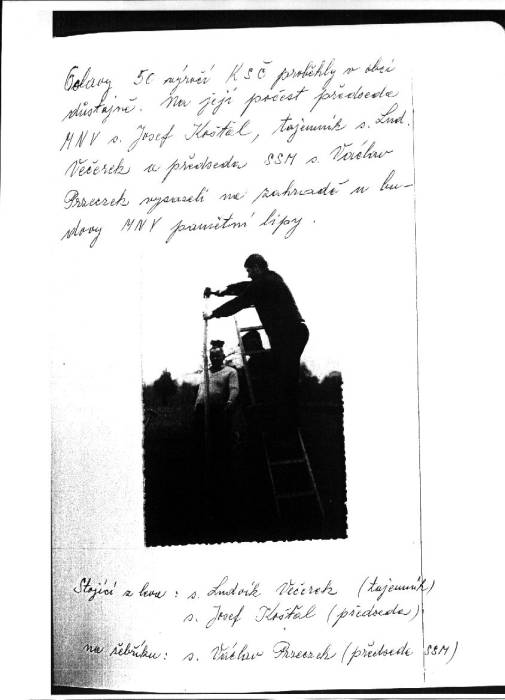 Oslavy 50 výročí KSČ proběhly v obci
důstojně. Na její počest předseda
MNV s. Josef Košťál, tajemník s. Lud.
Večerek a předseda SSM s. Václav
Przeczek vysadili na zahradě u bu-
dovy MNV pamětní lípy.
Stojící z leva: s. Ludvík Večerek (tajemník)
s. Josef Košťál (předseda)
na žebříku: s. Václav Przeczek (předseda SSM)